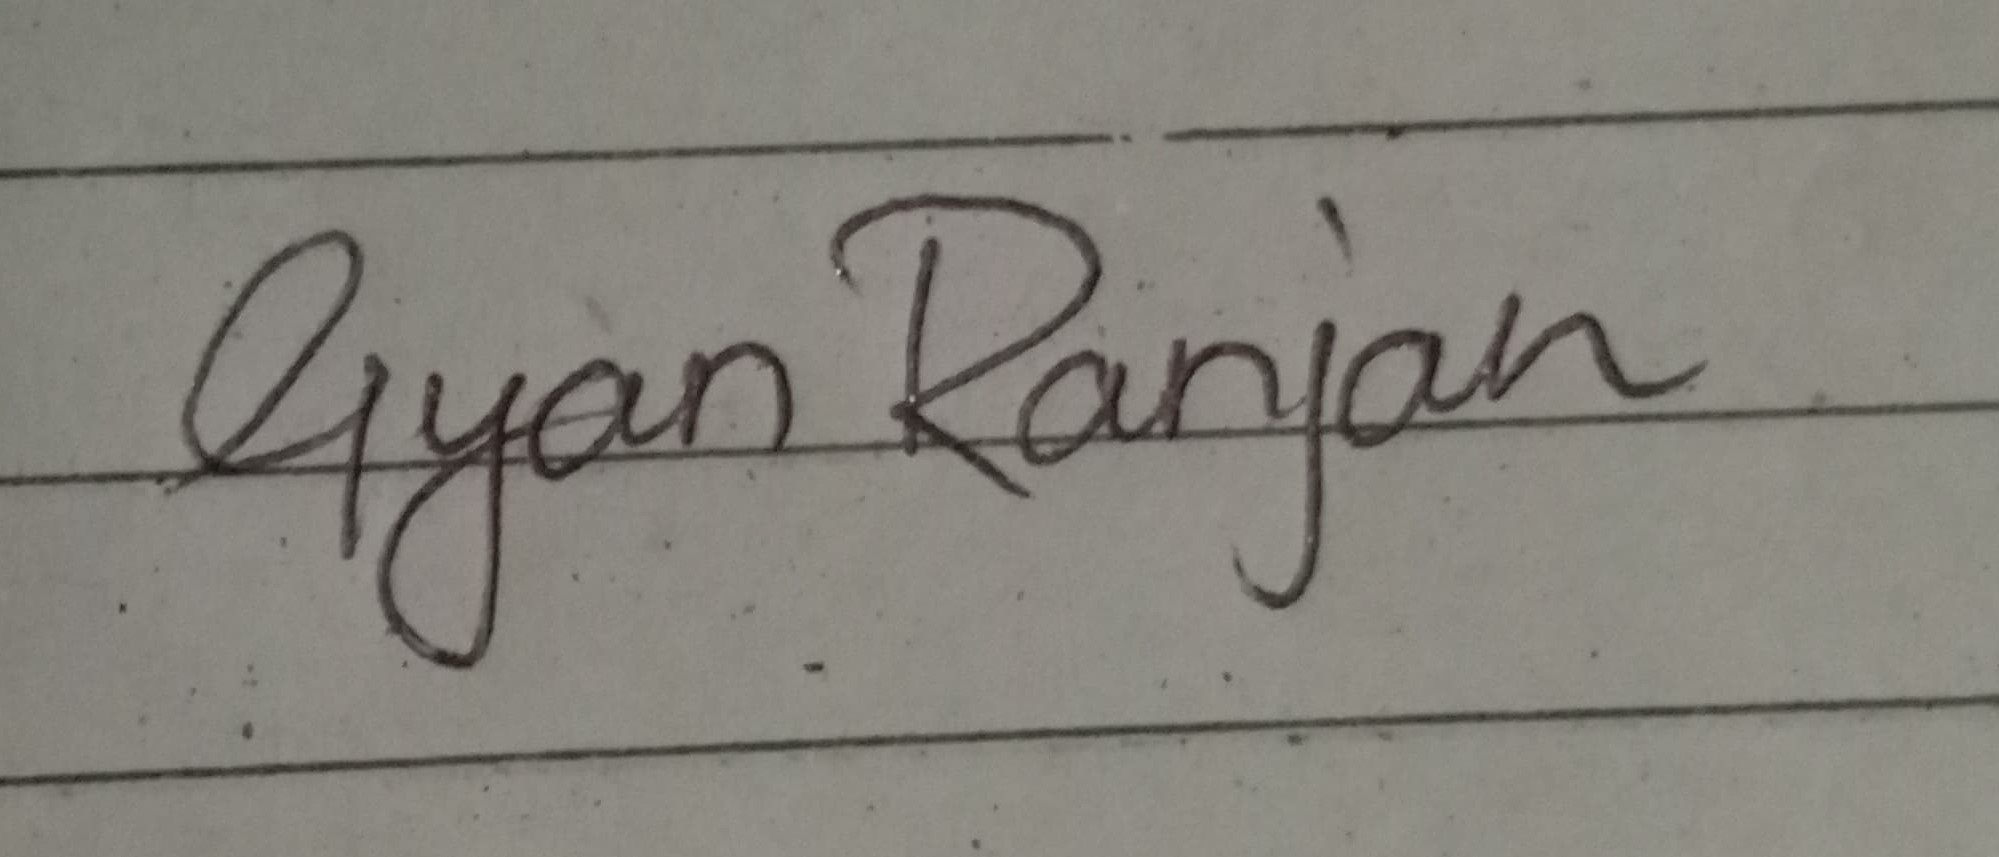 Gyan Ranjan